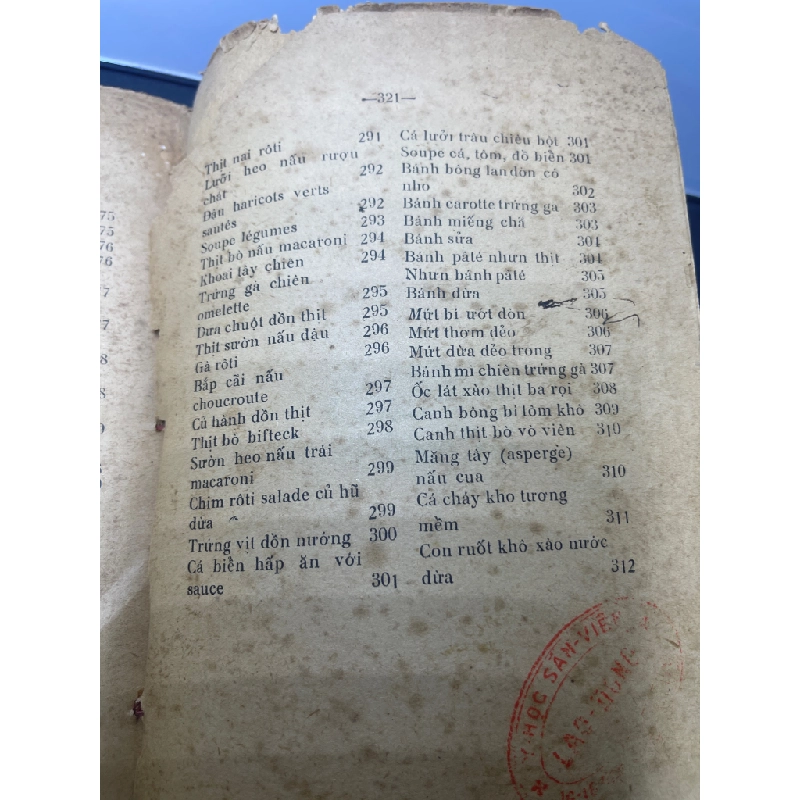 —321—
Thịt nai rôti 291
Lưỡi heo nấu rượu
chát 292
Đậu haricots verts
sautés 292
Soupe légumes 293
Thịt bò nấu macaroni 294
Khoai tây chiên 294
Trứng gà chiên
omelette 295
Dưa chuột dồn thịt 295
Thịt sườn nấu đậu 296
Gà rôti 296
Bắp cải nấu
choucroute 297
Củ hành dồn thịt 297
Thịt bò bifteck 298
Sườn heo nấu trái
macaroni 299
Chim rôti salade củ hũ
dừa 299
Trứng vịt dồn nướng 300
Cá biển hấp ăn với
sauce 301
Cá lưỡi trâu chiên bột 301
Soupe cá, tôm, đồ biển 301
Bánh bông lan dồn có
nho 302
Bánh carotte trứng gà 303
Bánh miếng chả 303
Bánh sữa 304
Bánh pâté nhưn thịt 304
Nhưn bánh pâté 305
Bánh dừa 305
Mứt bí ướt dòn 306
Mứt thơm dẻo 306
Mứt dừa dẻo trong 307
Bánh mì chiên trứng gà 307
Ốc lát xào thịt ba rọi 308
Canh bông bí tôm khô 309
Canh thịt bò vò viên 310
Măng tây (asperge)
nấu cua 310
Cá cháy kho tương
mềm 311
Con ruốt khô xào nước
dừa 312
75
75
76
76
7
7
8
8
HỌC SẢN-VIÊN
LAO-ĐỘNG